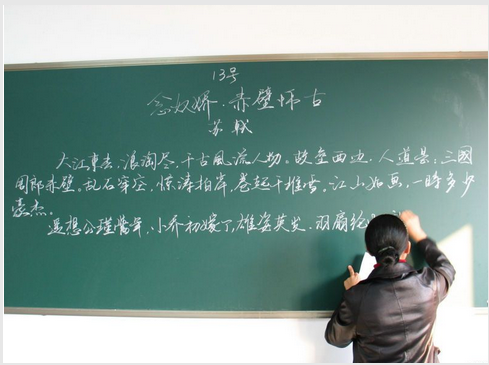 13号
念奴娇·赤壁怀古
苏轼
大江東去,浪淘尽,千古風流人物。故垒西边,人道是:三國
周郎赤壁。乱石穿空,惊涛拍岸,卷起千堆雪。江山如画,一時多少
豪杰。
遥想公瑾當年,小乔初嫁了,雄姿英发,羽扇纶